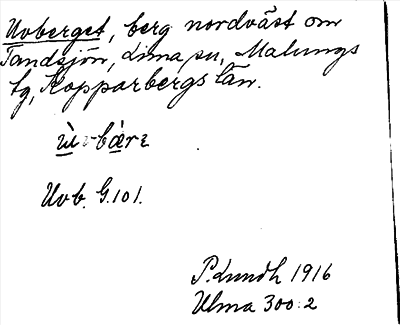 Uvberget, berg nordväst om
Tandsjön, Lima sn, Malungs
tg, Kopparbergs län.
Uvb. G.101.
P. Lundh 1916
Ulma 300:2